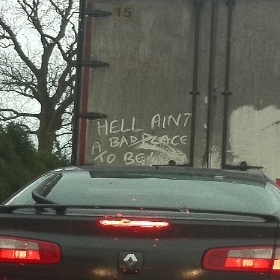 15
HELL AINT
A BAD PLACE
TO BE!